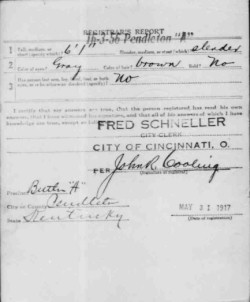 REGISTRAR'S REPORT
16-3-56 Pendleton "A"
1 Tall, medium, or short (specify which)? 6'1" Slender, medium, or stout (which)? slender
2 Color of eyes? Gray Color of hair? brown Bald? No
3 Has person lost arm, leg, hand, foot, or both No
I certify that my answers are true, that the person registered has read his own
answers, that I have witnessed his signature, and that all of his answers of which I have
knowledge are true, except as follows:
FRED SCHNELLER
CITY CLERK
CITY OF CINCINNATI, O.
PER John R. Cooling
(Signature of registrar)
Precinct Butler "A"
City or County Pendleton
State Kentucky
MAY 31 1917
(Date of registration)